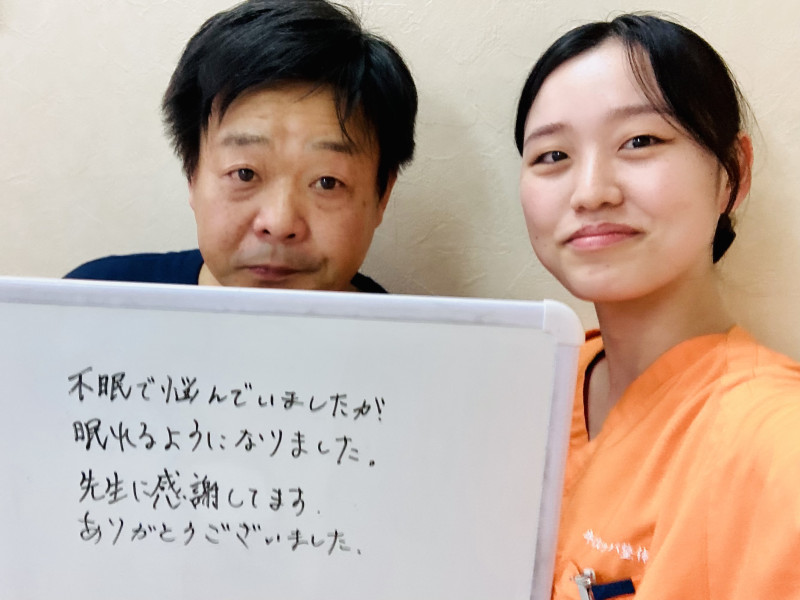 不眠で悩んでいましたが
眠れるようになりました。
先生に感謝してます.
ありがとうございました.
整体